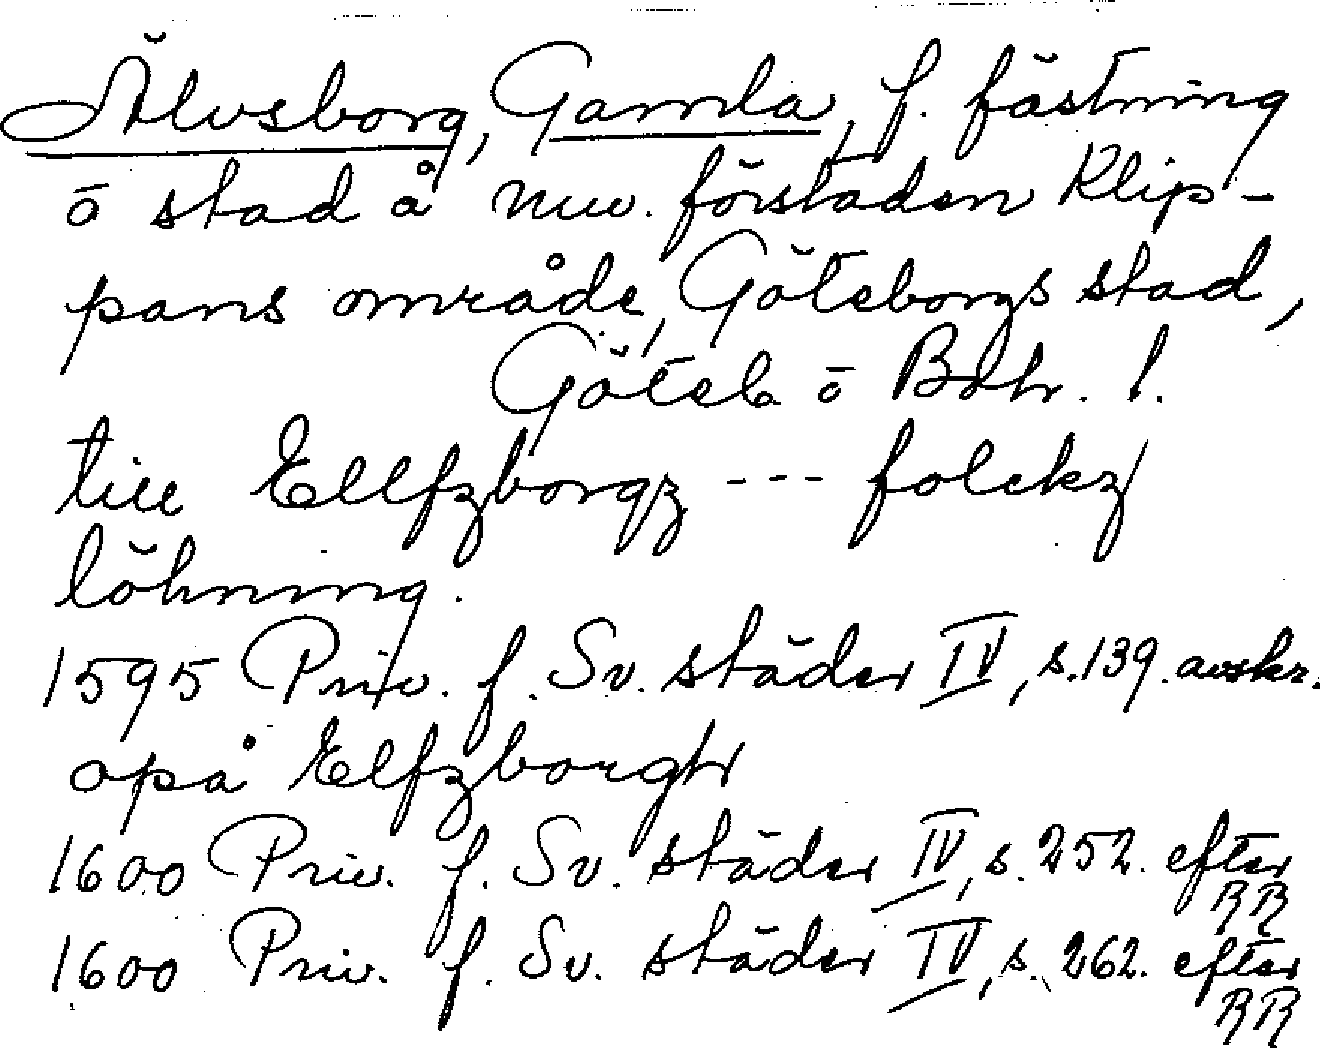 Älvsborg, Gamla, f. fästning
o stad å nuv. förstaden Klip-
pans område, Göteborgs stad,
Göteb. o Boh. l.
till Ellfzborgz --- folckz
löhning.
1595 Priv. f. Sv. städer IV, s. 139. avskr.
opå Elfzborgh
1600 Priv. f. Sv. städer IV, s. 252. efter
RR
1600 Priv. f. Sv. städer IV, s. 262. efter
RR